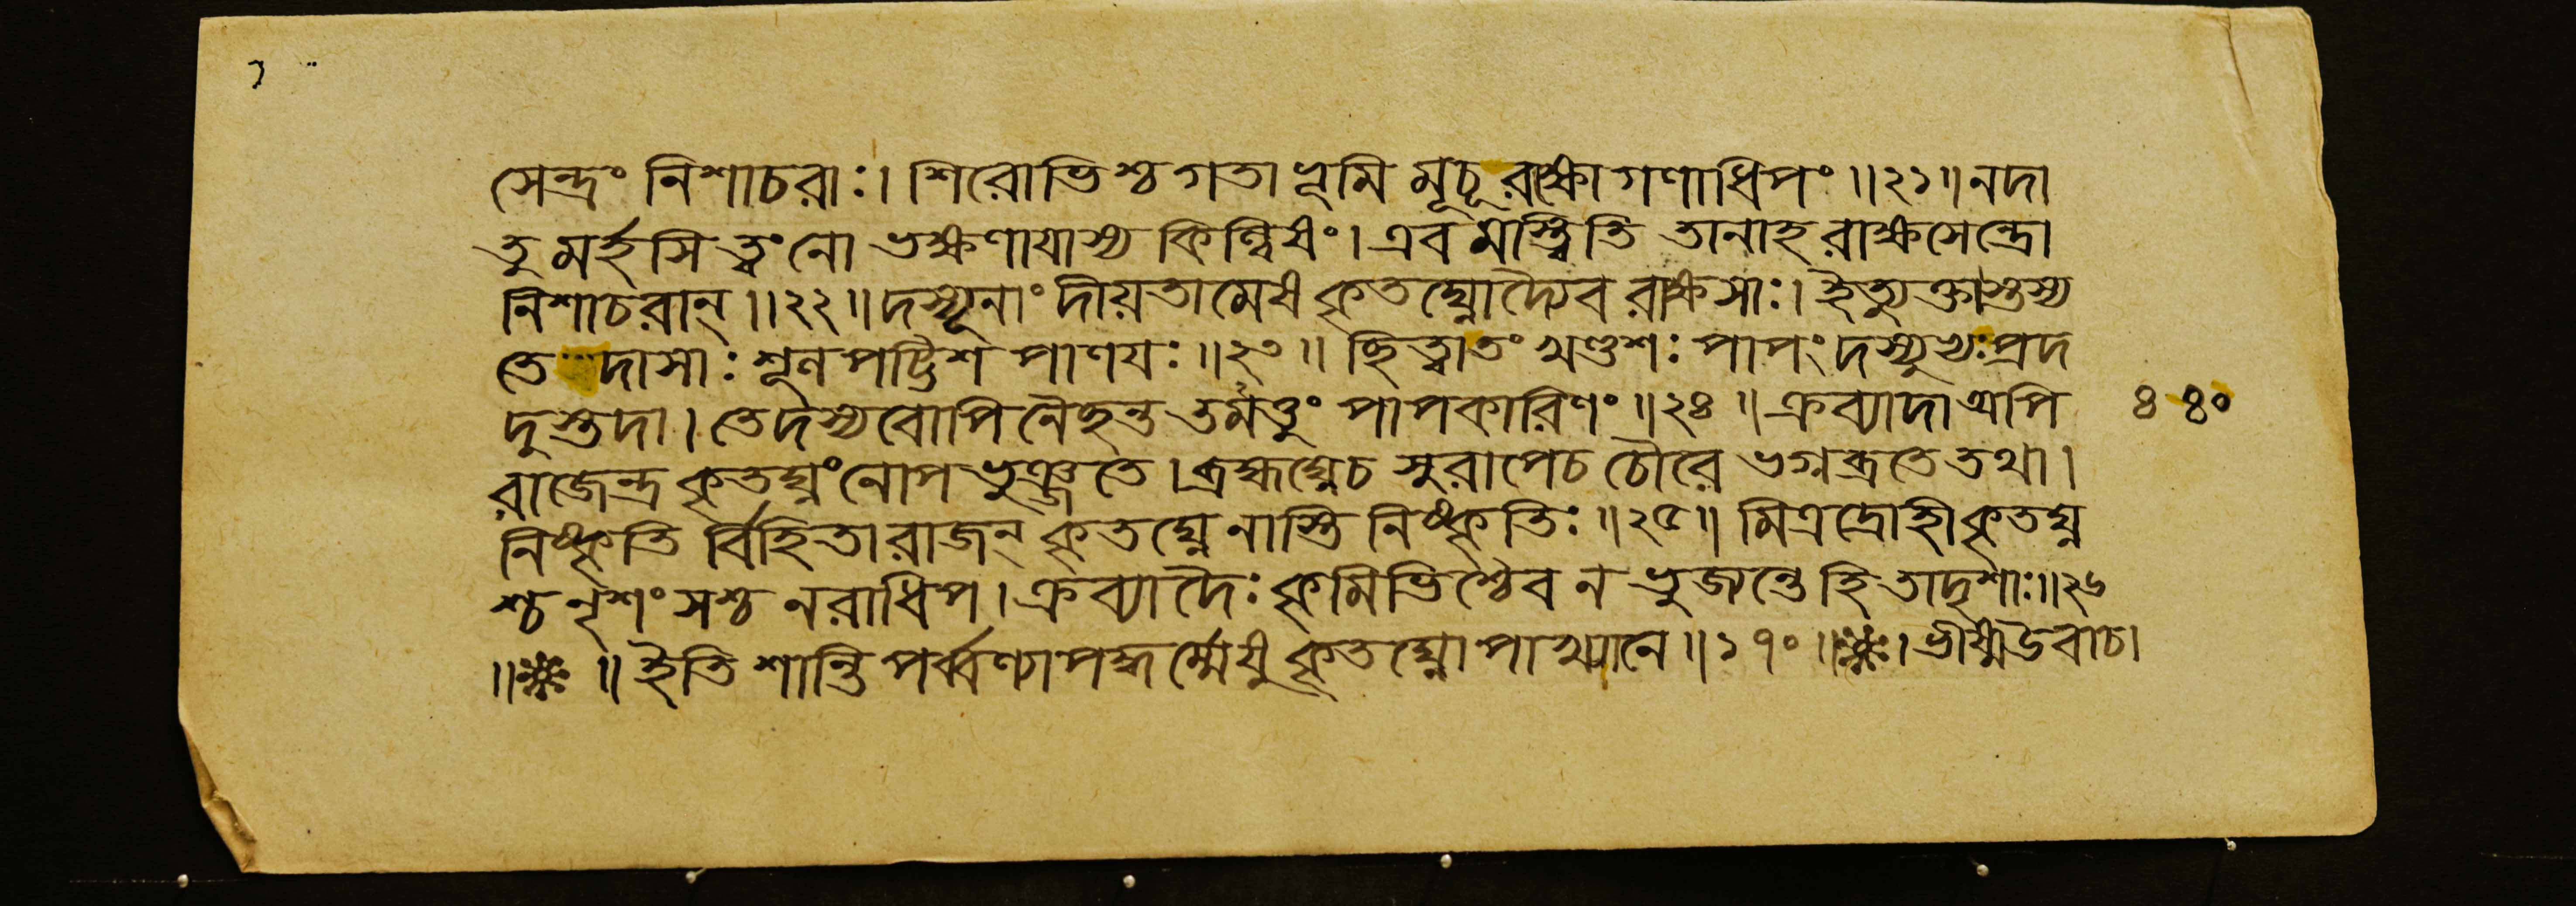 সেন্দ্রং নিশাচরাঃ। শিরোভিশ্চ গতা ভূমি মূচূ রক্ষোগণাধিপং ॥২১॥ নদা
তু মর্হসি ত্বং নো ভক্ষণাযাস্য কিল্বিষং। এব মস্ত্বিতি তানাহ রাক্ষসেন্দ্রো
নিশাচরান্ ॥২২॥ দস্যূনাং দীয়তামেষ কৃতঘ্নোদ্যৈব রাক্ষসাঃ। ইত্যুক্তাস্তস্য
তে দাসাঃ শূলপট্টিশ পাণযঃ ॥২৩॥ ছিত্বাতং খণ্ডশঃ পাপং দস্যুভ্যঃ প্রদ
দুস্তদা। তেদস্যবোপি নৈছন্ত তমত্তুং পাপকারিণং ॥২৪॥ ক্রব্যাদা অপি
৪৪০
রাজেন্দ্র কৃতঘ্নং নোপ ভুঞ্জতে। ব্রহ্মঘ্নেচ সুরাপেচ চৌরে ভগ্নব্রতে তথা।
নিষ্কৃতি র্বিহিতা রাজন্ কৃতঘ্নে নাস্তি নিষ্কৃতিঃ ॥২৫॥ মিত্রদ্রোহী কৃতঘ্ন
শ্চ নৃশংসশ্চ নরাধিপ। ক্রব্যাদৈঃ কৃমিভিশ্চৈব ন ভুজ্যন্তে হি তাদৃশাঃ॥২৬
॥ ॥ ইতি শান্তি পর্ব্বণ্যাপদ্ধর্ম্মেষু কৃতঘ্নোপাখ্যানে ॥১৭০॥ । ভীষ্মউবাচ।